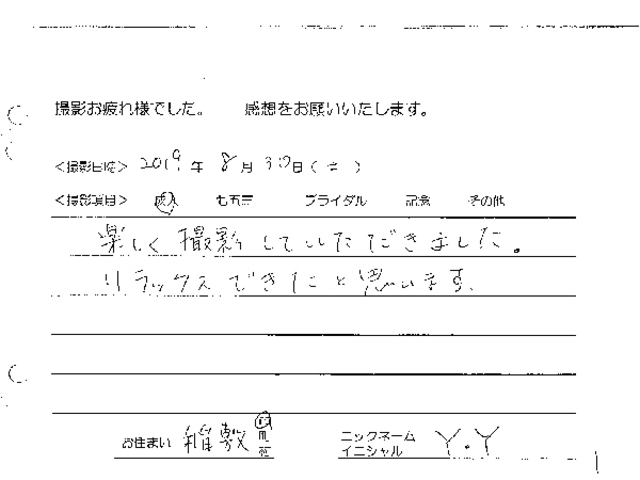 撮影お疲れ様でした。 感想をお願いいたします。
<撮影日時> 2019年 8月 30日( )
<撮影項目> 成人 七五三 ブライダル 記念 その他
楽しく撮影していただきました。
リラックスできたと思います。
お住まい 稲敷 市 町 ニックネーム イニシャル Y.Y